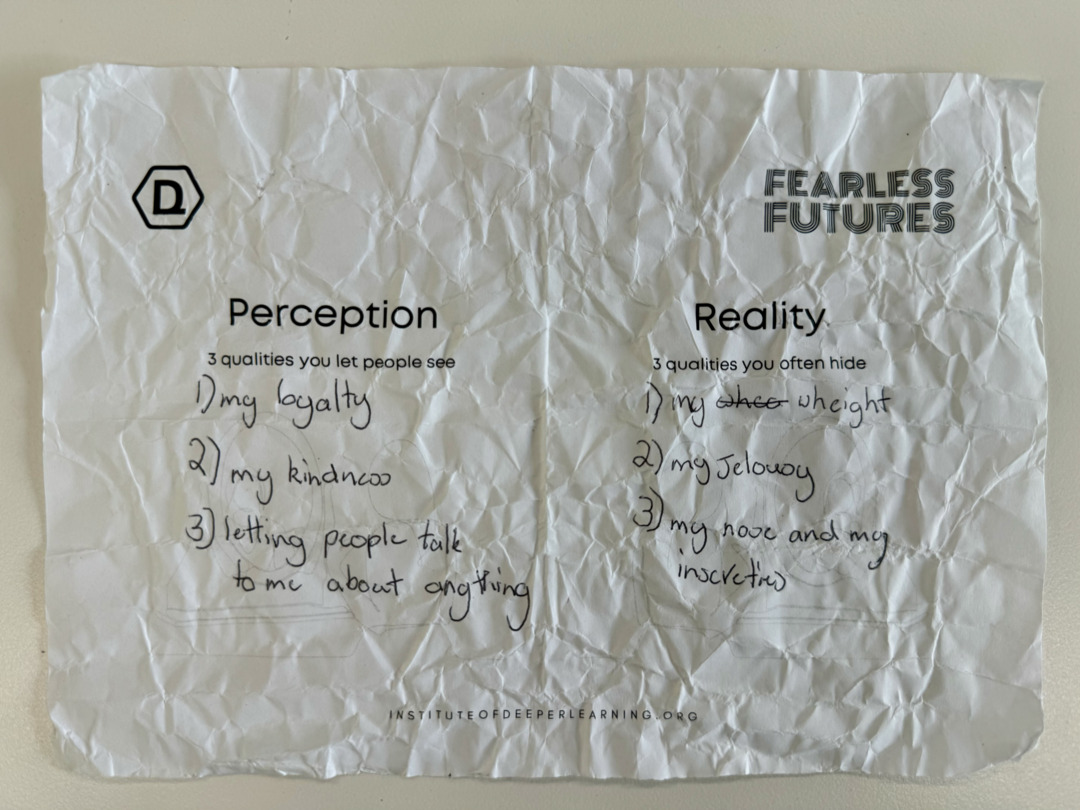 D
FEARLESS
FUTURES
Perception
3 qualities you let people see
1) my loyalty
2) my kindness
3) letting people talk
to me about anything
Reality
3 qualities you often hide
1) my whee wheight
2) my Jelousy
3) my nose and my
insereties
INSTITUTEOFDEEPERLEARNING.ORG